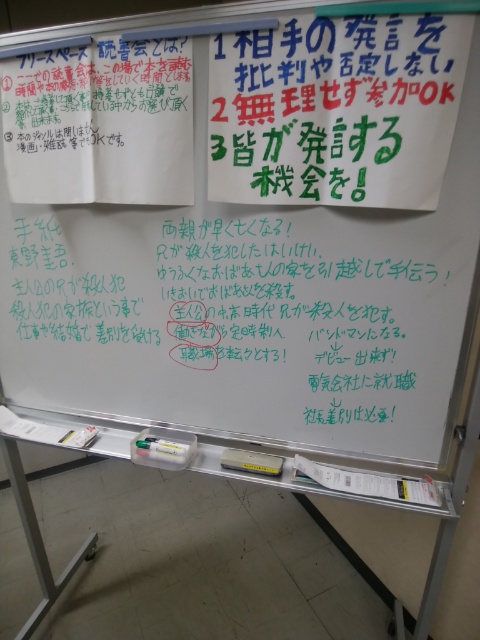 フリースペース 読書会とは?
① ここでの読書会は、この場で本を読む
③ 本のジャンルは問いません
漫画・雑誌 等でもOKです。
1 相手の発言を
批判や否定しない
2 無理せず参加OK
3 皆が発言する
機会を!
手紙
東野圭吾.
主人公の兄が殺人犯
殺人犯の家族という事で
仕事や結婚で差別を受ける
両親が早く亡くなる!
兄が殺人を犯した
ゆうふくなおばあさんの家を引越しで手伝う!
いきおいでおばあさんを殺す。
主人公の 時代 兄が殺人を犯す。
働きながら定時制へ
職場を転々とする!
バンドマンになる。
↓
デビュー出来ず!
電気会社に就職
↓
社長差別は必要!